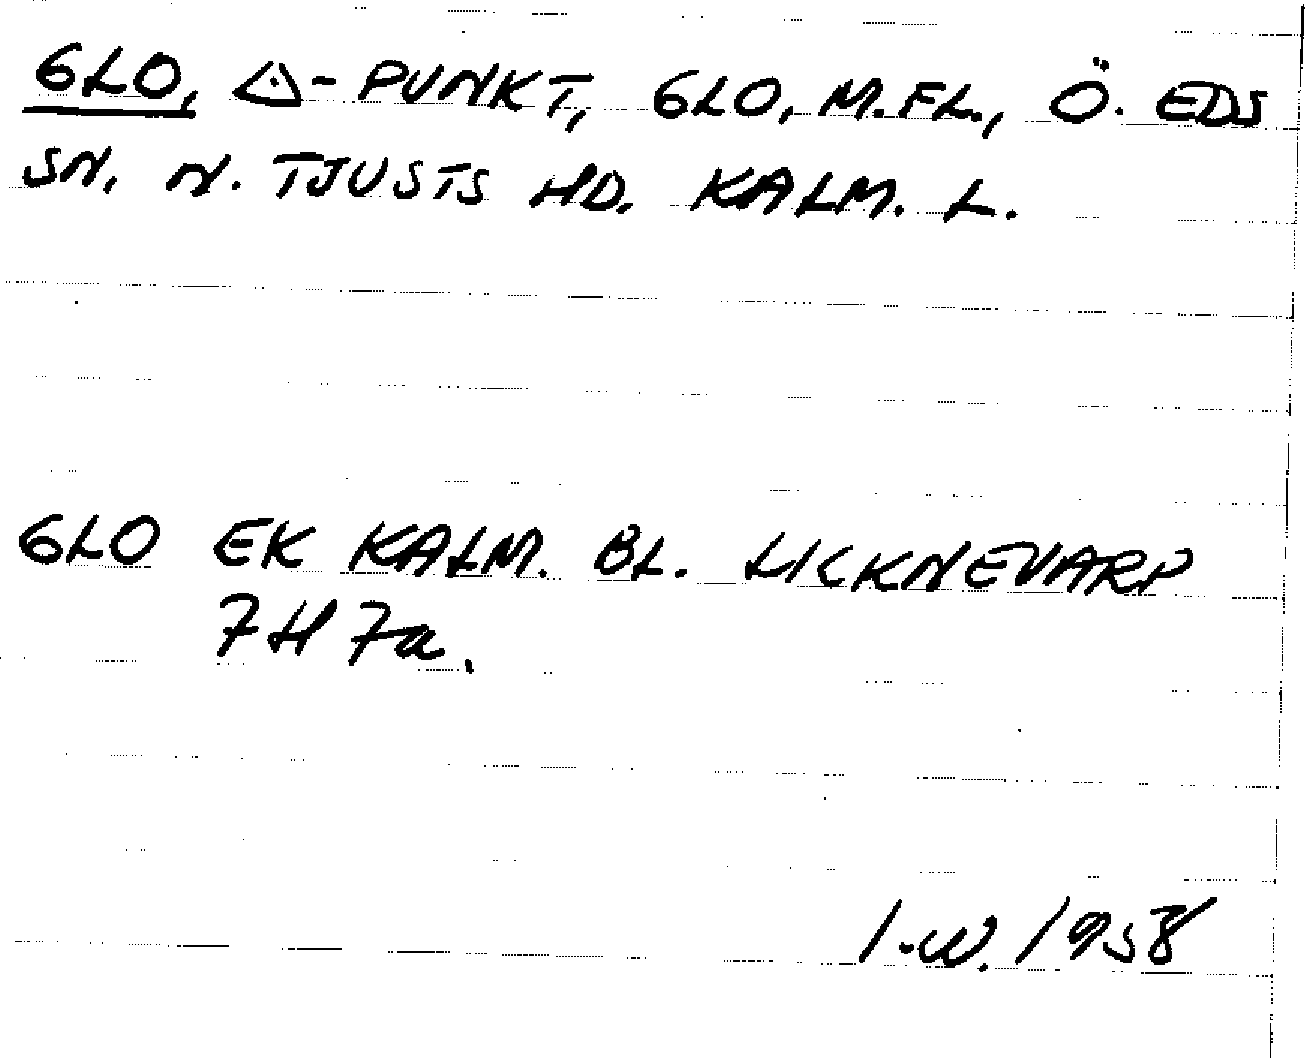 GLO, △-PUNKT, GLO, M.FL., Ö. EDS
SN, N. TJUSTS HD. KALM. L.
GLO EK KALM. BL. LICKNEVARP
7H 7a.
I.W. 1958